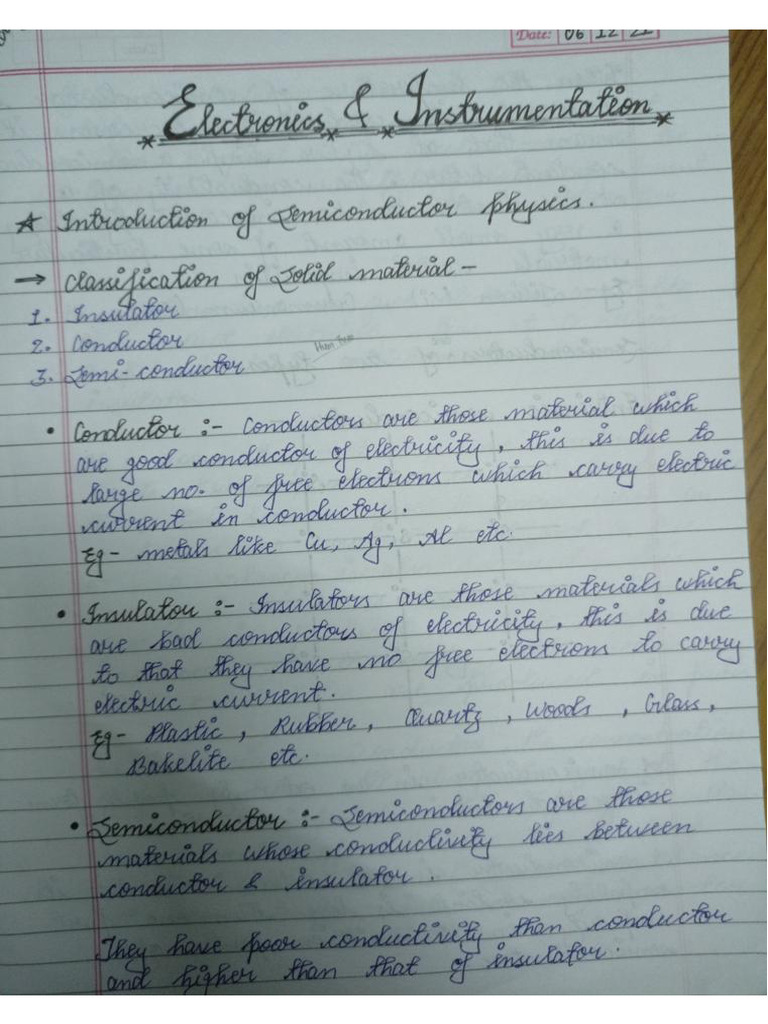 Date: 06 12 21
Electronics & Instrumentation
★ Introduction of Semiconductor physics.
→ Classification of Solid material -
1. Insulator
2. Conductor
3. Semi-conductor
• Conductor :- Conductors are those material which
are good conductor of electricity, this is due to
large no. of free electrons which carry electric
current in conductor.
Eg - metals like Cu, Ag, Al etc.
• Insulator :- Insulators are those materials which
are bad conductors of electricity, this is due
to that they have no free electrons to carry
electric current.
Eg - Plastic, Rubber, Quartz, Woods, Glass,
Bakelite etc.
• Semiconductor :- Semiconductors are those
materials whose conductivity lies between
conductor & insulator.
They have poor conductivity than conductor
and higher than that of insulator.